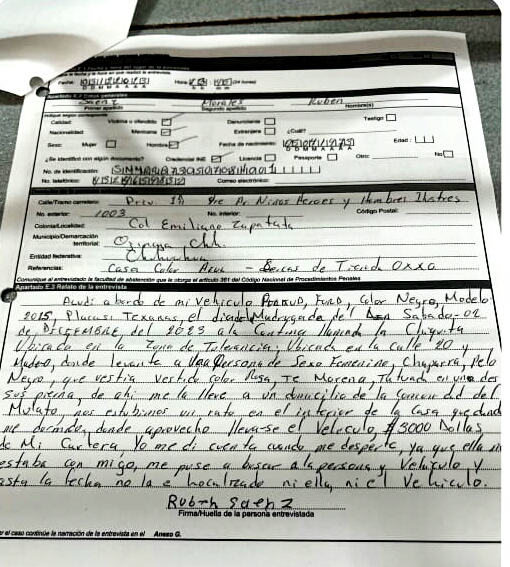 Fecha:
Hora
(24 horas)
Apartado E.2 Datos generales
Saenz Morales Ruben
Primer apellido Segundo apellido Nombre(s)
Calidad: Víctima u ofendido Denunciante Testigo
Nacionalidad: Mexicana Extranjera ¿Cuál?
Sexo: Mujer Hombre Fecha de nacimiento: Edad:
D D M M A A A A
¿Se identificó con algún documento? Credencial INE Licencia Pasaporte Otro: No
No. de identificación:
No. telefónico: Correo electrónico:
Calle/Tramo carretero: Priv. Dr. Ninos Heroes y Hombres Ilustres
No. exterior: 1003 No. interior: Código Postal:
Colonia/Localidad: Col Emiliano Zapata
Municipio/Demarcación
territorial: Ojinaga Chih.
Entidad federativa: Chihuahua
Referencias: Casa Color Azul - Cercas de Tienda Oxxo
Comunique al entrevistado la facultad de abstención que le otorga el artículo 361 del Código Nacional de Procedimientos Penales
Apartado E.3 Relato de la entrevista
Acudi a bordo de mi Vehiculo Ford, Color Negro, Modelo
2015, Placas: Texanas, el dia de Madrugada del Sabado-02
de DICIEMBRE del 2023 a la Cantina llamada la Chiquita
Ubicada en la Zona de Tolerancia, Ubicada en la Calle 20 y
Madero, donde levante a Una Persona de Sexo Femenino, Chaparra, Pelo
Negro, que vestia vestido color Rosa, Te Morena, Tatuada en una de
sus pierna, de ahi me la lleve a un domicilio de la Comunidad del
Mulato, nos estubimos un rato en el interior de la Casa quedando
me dormido, donde aprovecho llevarse el Vehiculo, $3000 Dollas
de Mi Cartera, Yo me di cuenta cuando me desperte, ya que ella no
estaba con migo, me puse a buscar a la persona y Vehiculo y
asta la fecha no la e localizado ni ella, ni el Vehiculo.
Rubén Saenz
Firma/Huella de la persona entrevistada
el caso continúe la narración de la entrevista en el Anexo G.